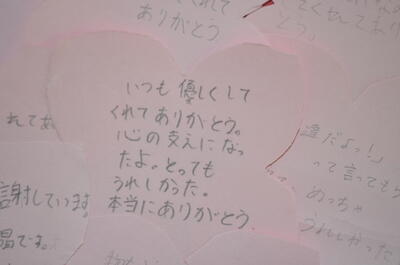 ありがとう
てくれてあり
とう。
いつも優しくして
くれてありがとう。
心の支えになっ
たよ。とっても
うれしかった。
本当にありがとう
れてあ
謝しています。
です。
だよっ!」
って言っても
めっちゃ
うれしかった